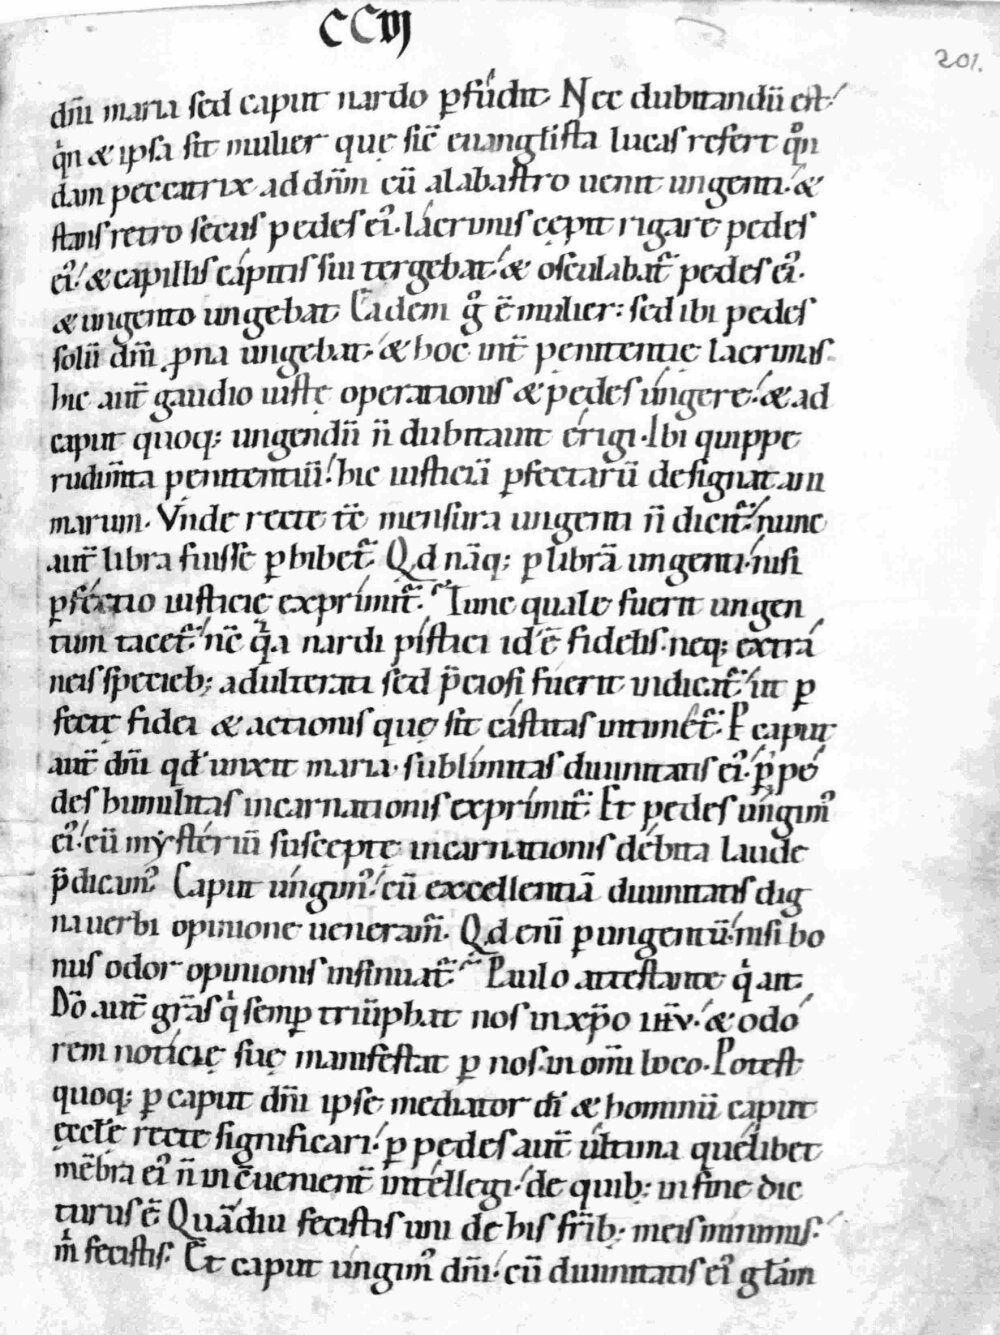 CCIIJ
201.
dñi maria sed caput nardo ꝑfudit. Nec dubitandū est
qͥn & ipsa sit mulier quę sic̄ euanglista lucas refert qͦn
dam peccatrix ad dnm̄ cū alabastro uenit ungenti. &
stans retro secus pedes ei᾽. lacrimis cępit rigare pedes
ei᾽. & capillis capitis sui tergebat. & osculabat᷑ pedes ei᾽.
& ungento ungebat Eadem gͦ ē mulier: sed ibi pedes
solū dñi ꝓna ungebat. & hoc int̄ penitentię lacrimas.
hic aut̄ gaudio iustę operationis & pedes ungere. & ad
caput quoq; ungendū ñ dubitauit erigi. Ibi quippe
rudim̄ta penitentiū. hic iusticiā ꝑfectarū designat ani
marum. Vnde recte t̄c mensura ungenti ñ dicit᷑. nunc
aut̄ libra fuisse ꝑhibet᷑. Qd nāq; ꝑ librā ungenti. nisi
ꝑfectio iusticię exprimit᷑. Tunc quale fuerit ungen
tum tacet᷑. nc̄ qͣa nardi pistici id᾽ē fidelis. neq; extra
neis specieb; adulterati sed p̄ciosi fuerit indicat᷑. ut ꝑ
fectę fidei & actionis quę sit castitas intimet᷑. P caput
aut̄ dñi qd᾽ unxit maria. sublimitas diuinitatis ei᾽. ꝑ pe
des humilitas incarnationis exprimit᷑. Et pedes ungim᾽
ei᾽. cū mẏsteriū susceptę incarnationis debita laude
p̄dicam᾽. Caput ungim᾽. cū excellentiā diuinitatis dig
na uerbi opinione ueneram᷑. Qd enī ꝑ ungentū. nisi bo
nus odor opinionis insinuat᷑. Paulo attestante qͥ ait.
Dō aut̄ gr̄as qͥ semꝑ triūphat nos in xp̄o ihv̄. & odo
rem noticię suę manifestat ꝑ nos. in om̄i loco. Potest
quoq; ꝑ caput dñi ipse mediator dī & hominū caput
ęccl̄ę recte significari. ꝑ pedes aut̄ ultima quelibet
mēbra ei᾽ ñ inc̄uenient̄ intellegi. de quib; in fine dic
turus ē Quādiu fecistis uni de his fr̄ib; meis minimis.
mͥ fecistis. Et caput ungim᾽ dñi. cū diuinitatis ei᾽ glām